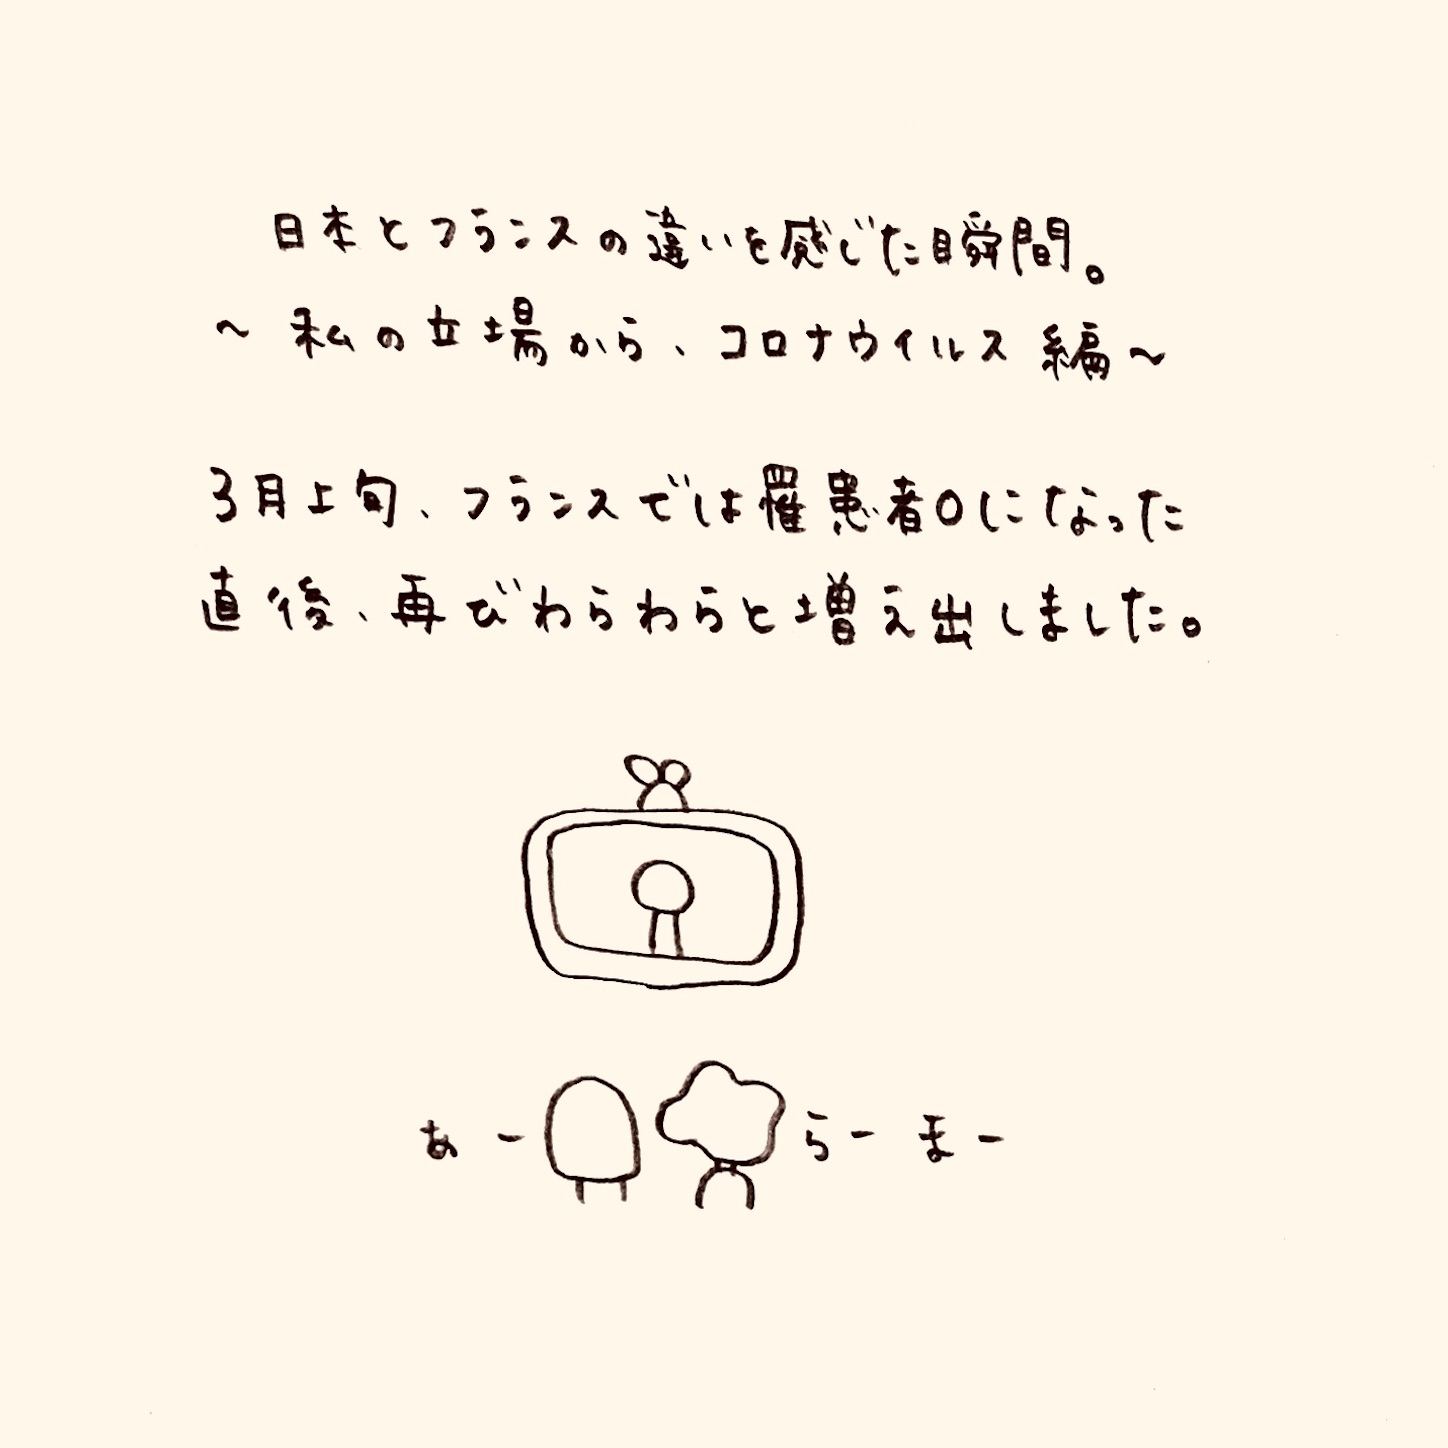 日本とフランスの違いを感じた瞬間。
～私の立場から、コロナウイルス編～
3月上旬、フランスでは罹患者0になった
直後、再びわらわらと増え出しました。
あー らーまー